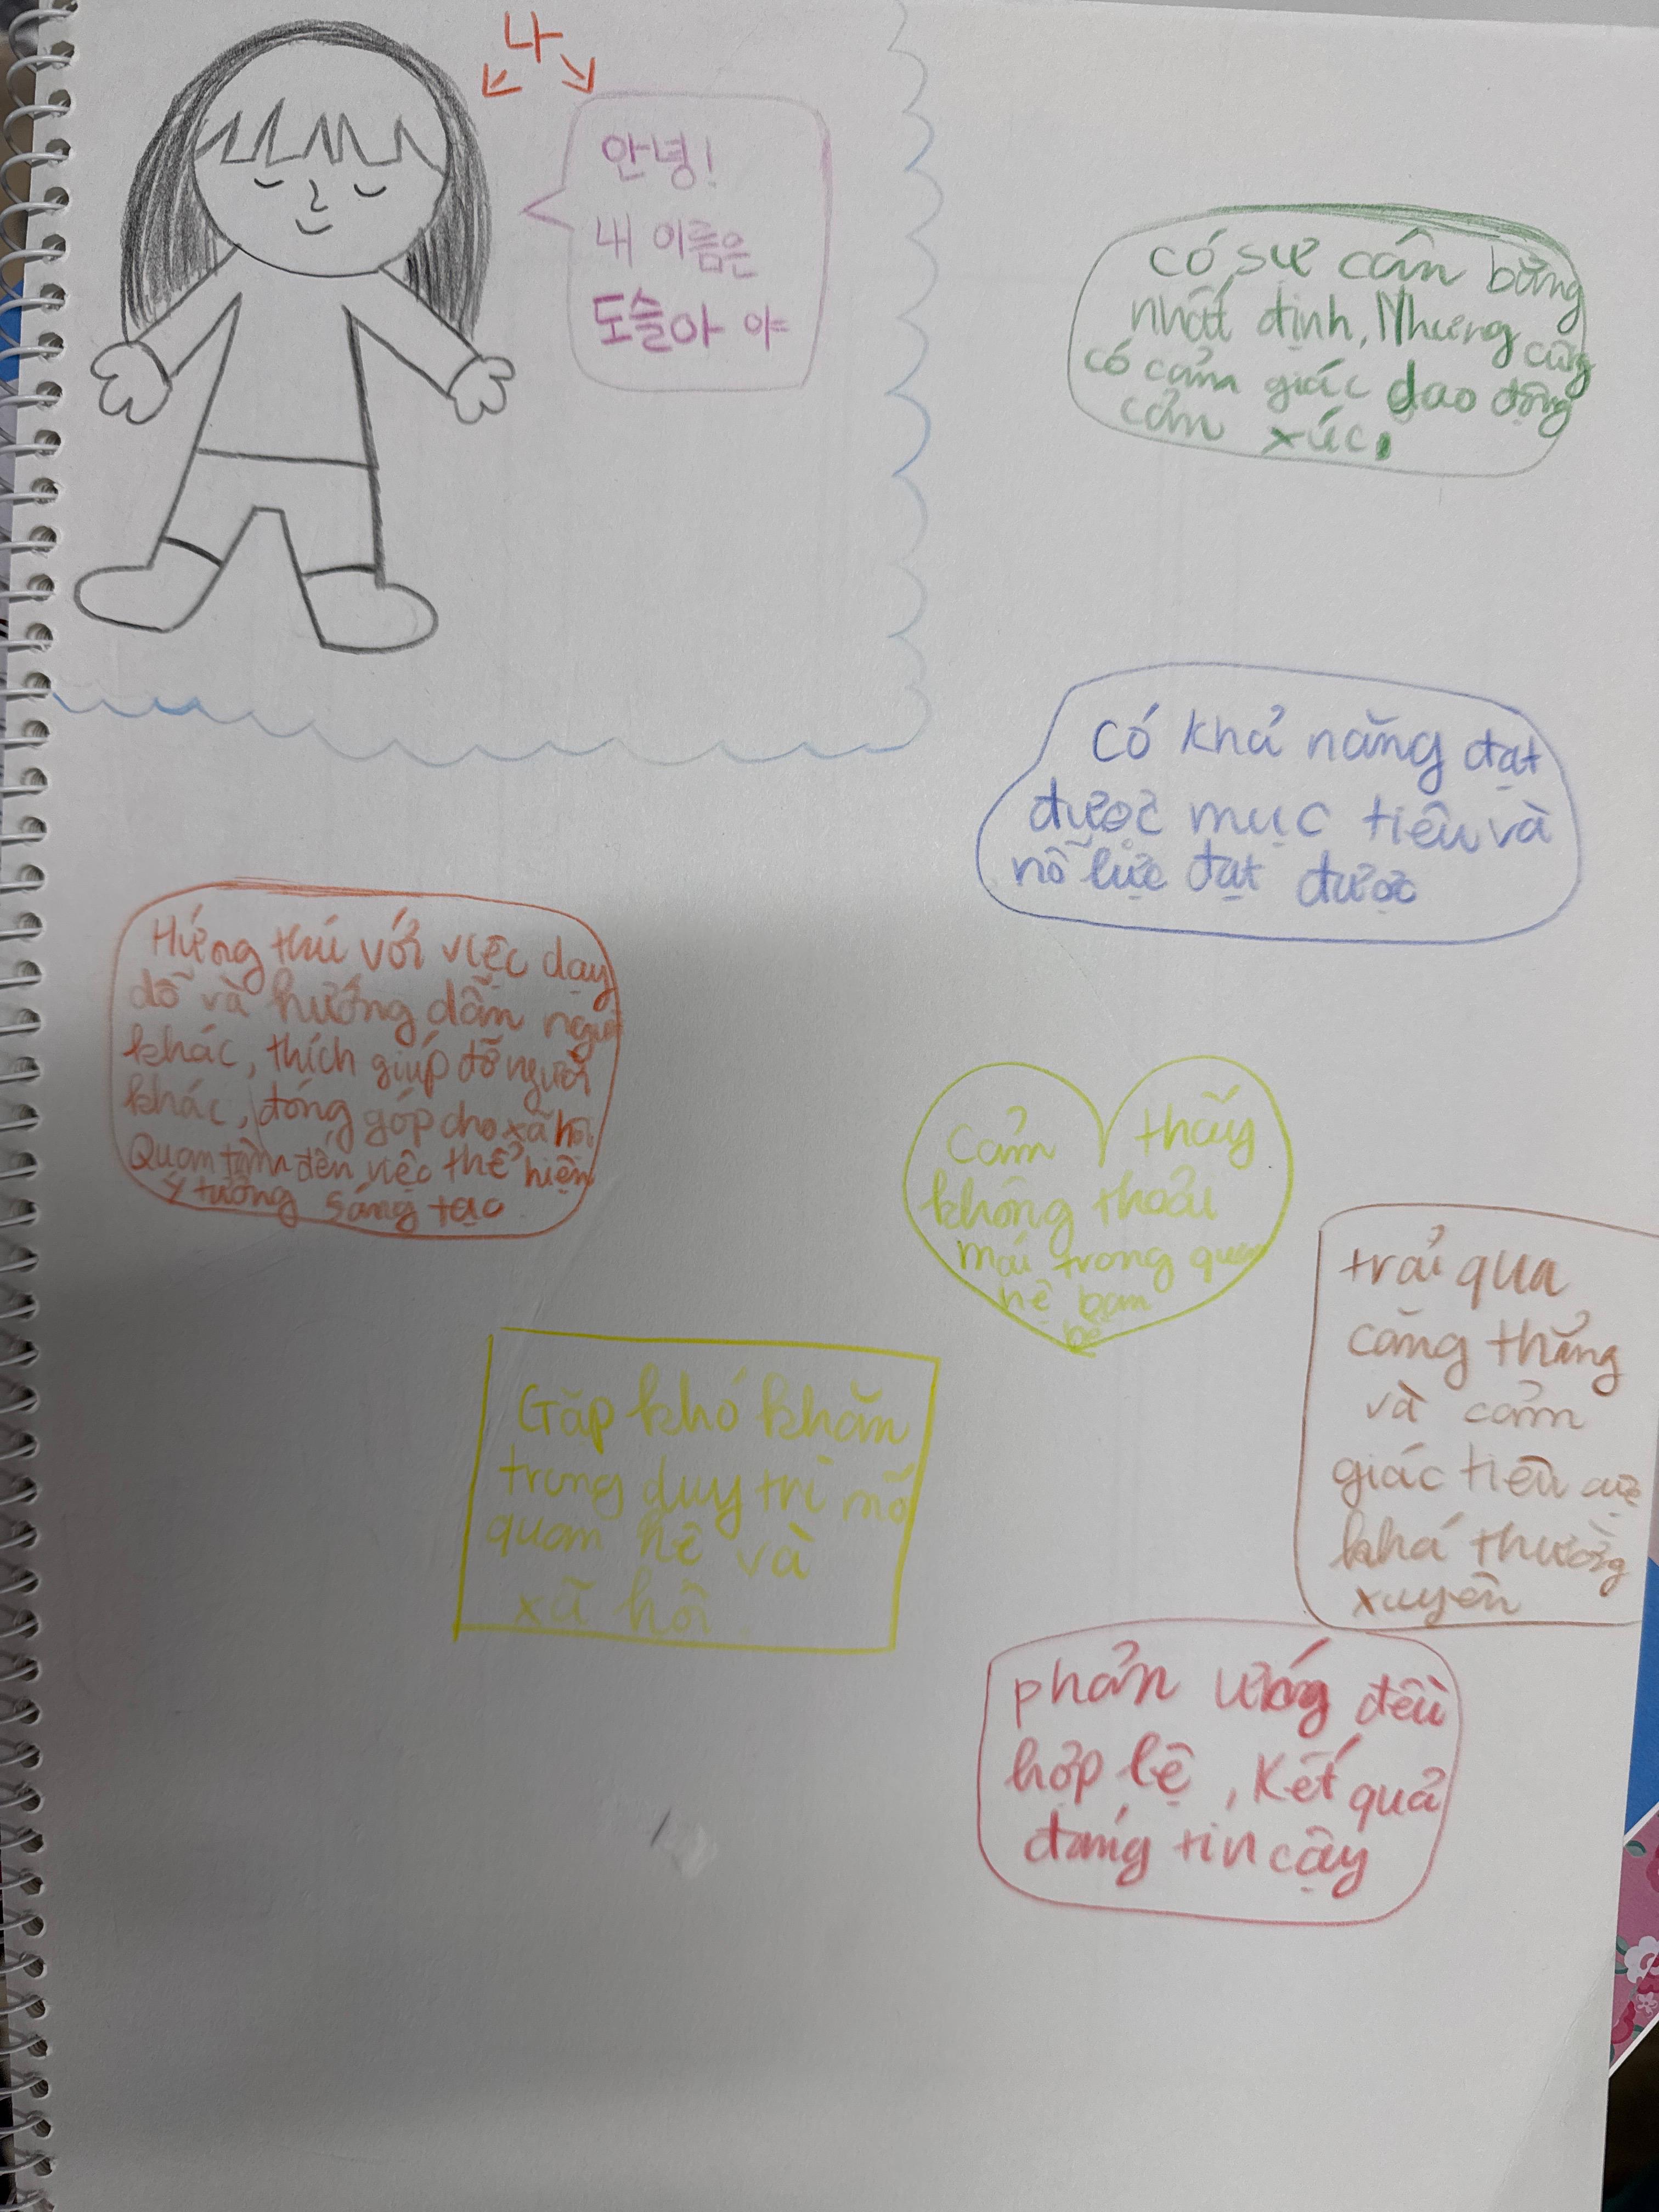 나
안녕!
내 이름은
도슬아 야
có sự cân bằng
nhất định, Nhưng cũng
có cảm giác dao động
cảm xúc,
có khả năng đạt
được mục tiêu và
nỗ lực đạt được
Hứng thú với việc dạy
dỗ và hướng dẫn người
khác, thích giúp đỡ người
khác, đóng góp cho xã hội
Quan tâm đến việc thể hiện
ý tưởng sáng tạo
Cảm thấy
không thoải
mái trong quan
hệ bạn
bè
trải qua
căng thẳng
và cảm
giác tiêu cực
khá thường
xuyên
Gặp khó khăn
trong duy trì mố
quan hệ và
xã hội.
phản ứng đều
hợp lệ, Kết quả
đáng tin cậy